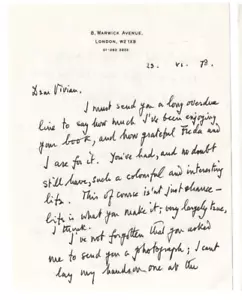 8, WARWICK AVENUE,
LONDON, W2 1XB
23. VI. 78.
Dear Vivian,
I must send you a long overdue
line to say how much I've been enjoying
your book, and how grateful Freda and
I are for it. You've had, and no doubt
still have, such a colourful and interesting
life. This of course isn't just chance –
life is what you make it; very largely true,
I think.
I've not forgotten that you asked
me to send you a photograph; I can't
lay my hands on one at the